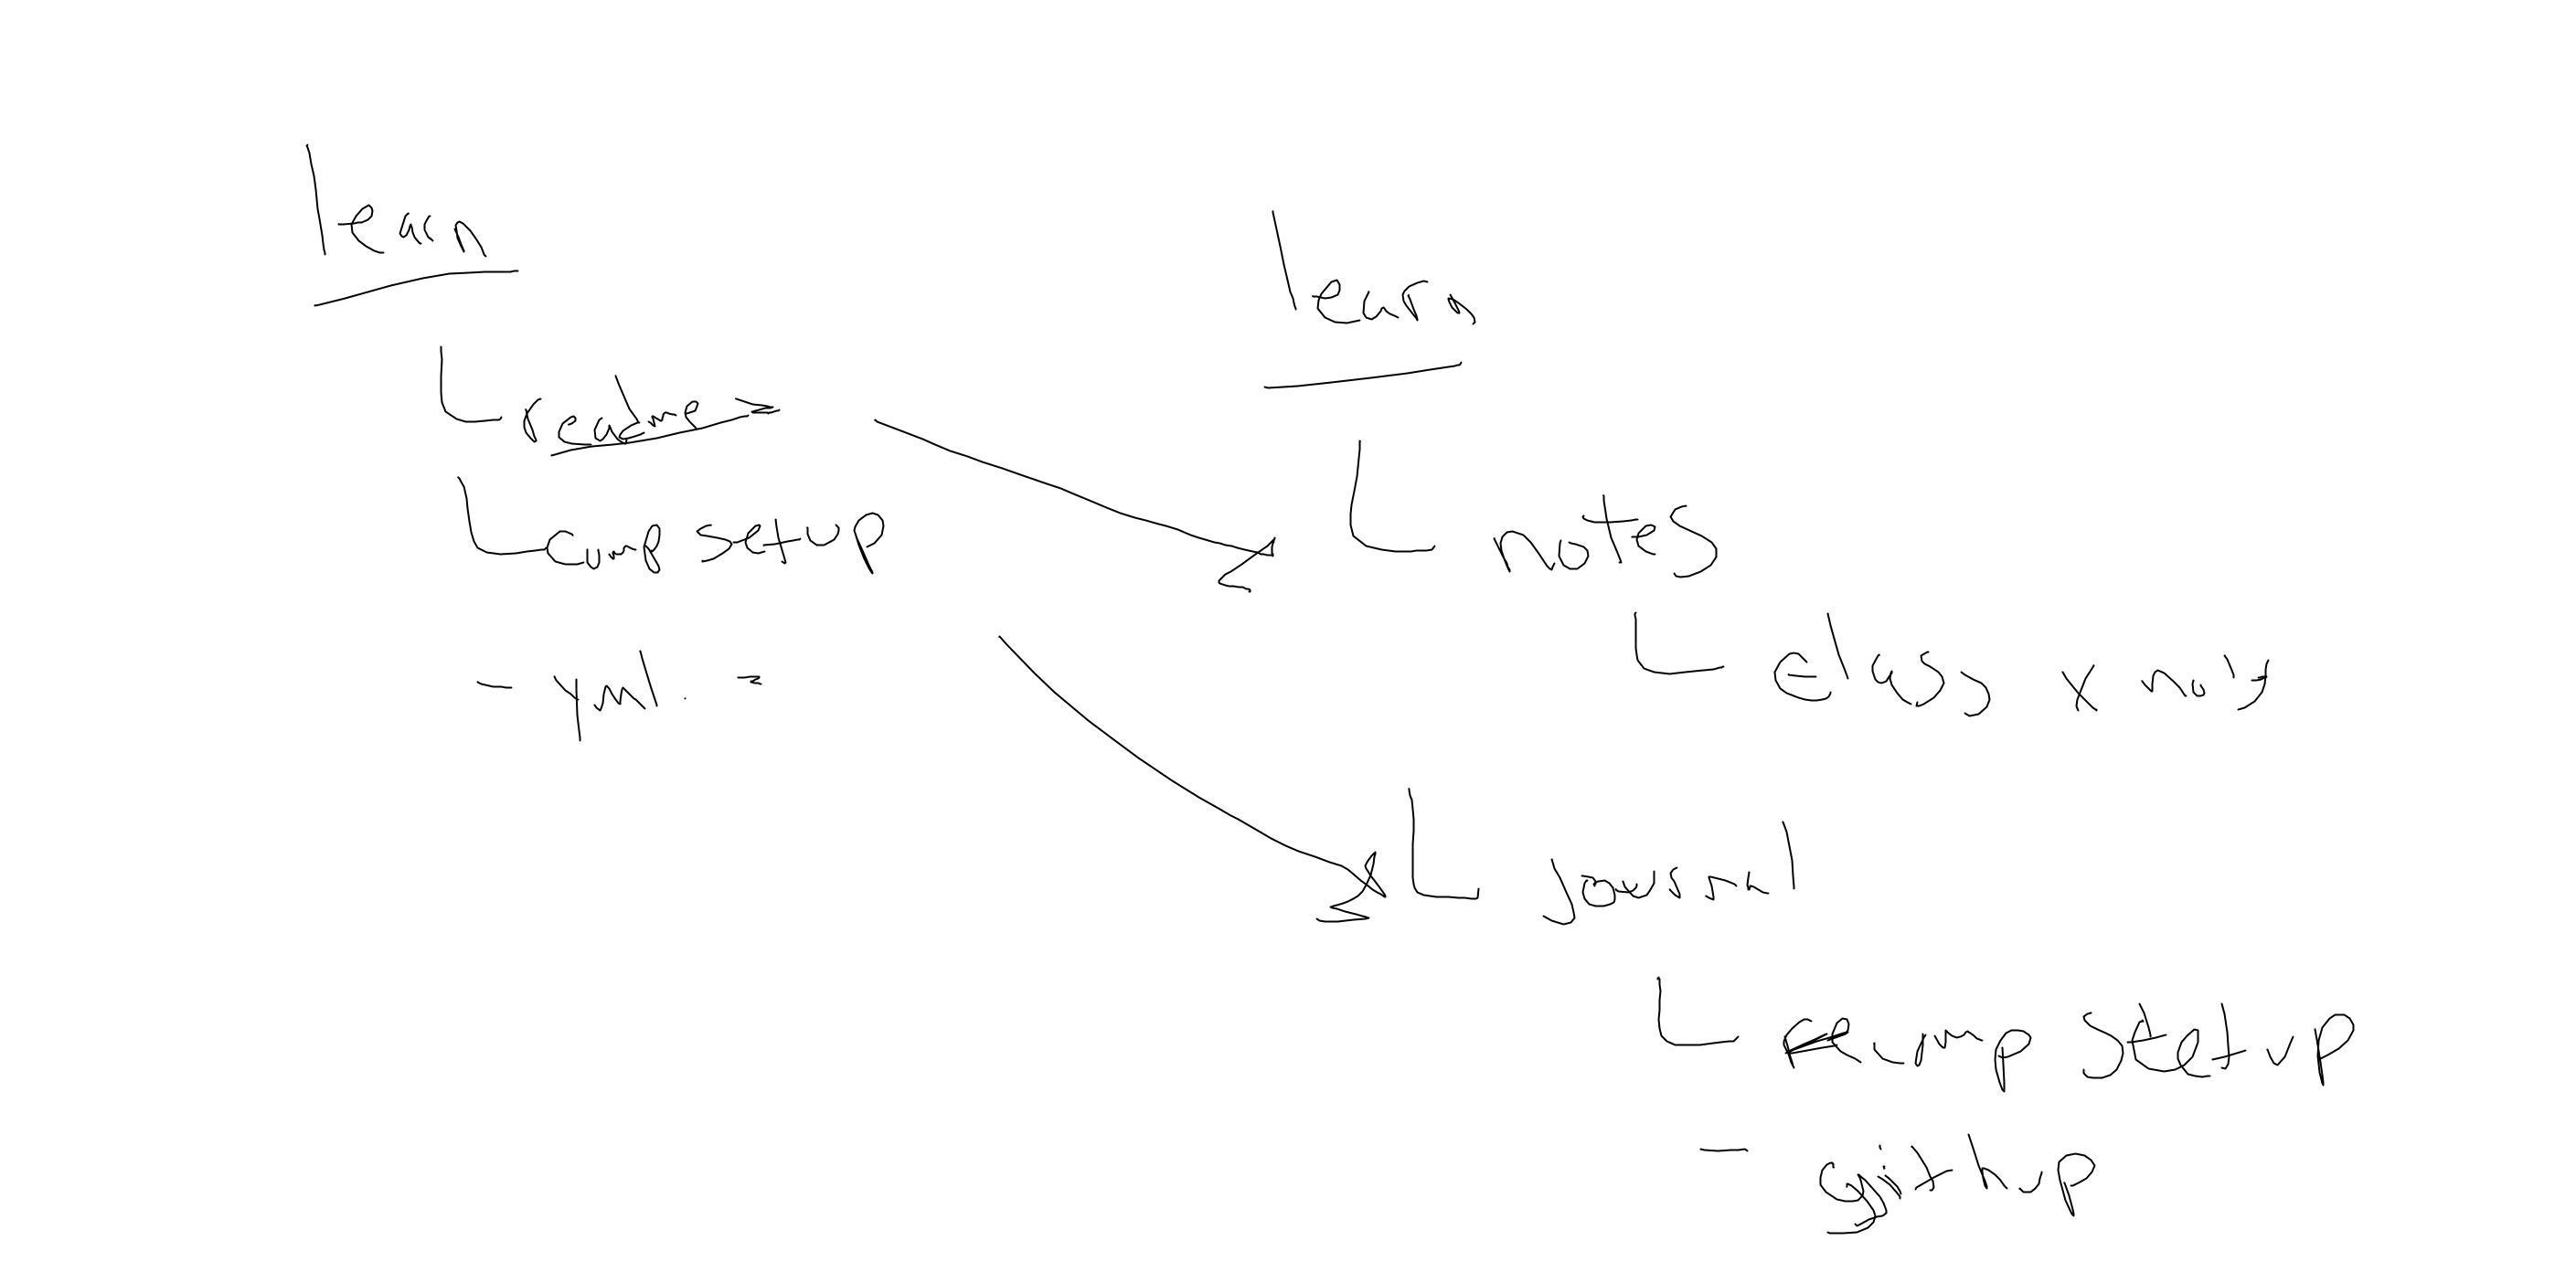 learn
readme
comp setup
- yml.
learn
notes
class x
journal
comp setup
- githup